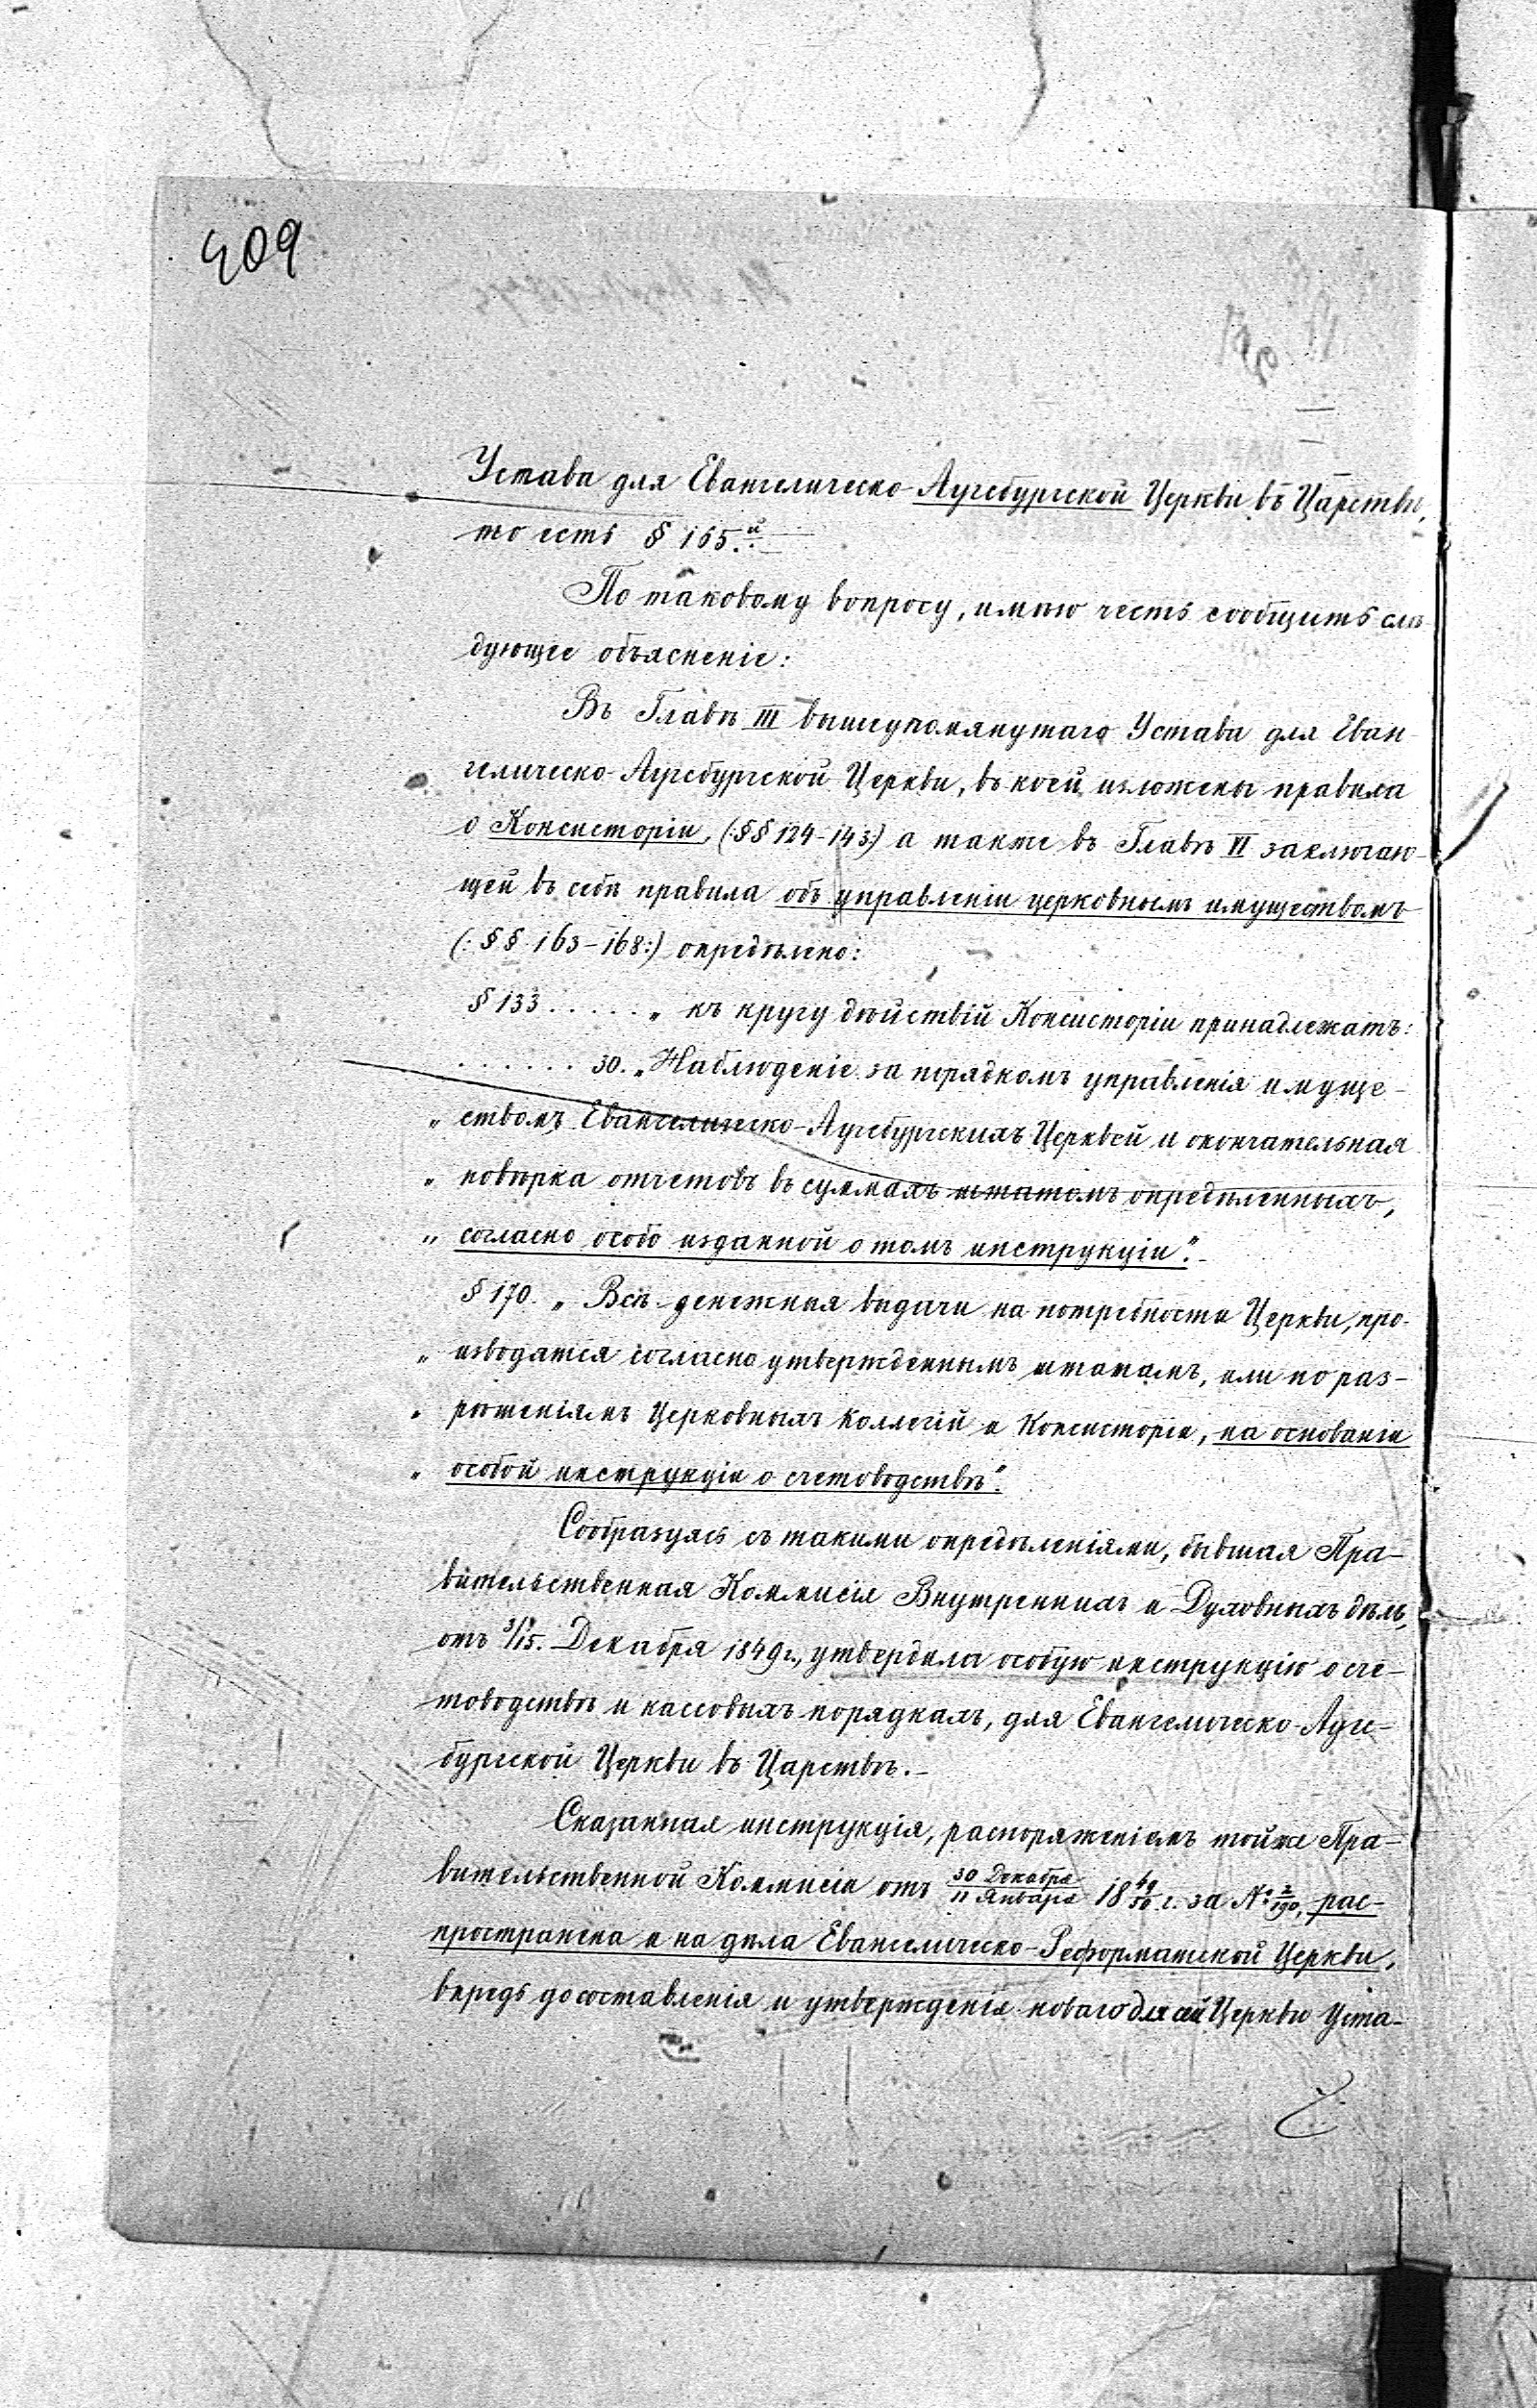 409
Устава для Евангелическо-Аугсбургской Церкви въ Царствѣ,
то есть § 165.й
По таковому вопросу, имѣю честь сообщить слѣ-
дующее объясненіе:
Въ Главѣ III вышеупомянутаго Устава для Еван-
гелическо-Аугсбургской Церкви, въ коей изложены правила
о Консисторіи, (:§§ 124-143:) а также въ Главѣ VI заключаю-
щей въ себѣ правила объ управленіи церковнымъ имуществомъ
(:§§ 163-168:) опредѣлено:
§ 133 . . . . . „ къ кругу дѣйствій Консисторіи принадлежатъ:
. . . . . . 30. „Наблюденіе за порядкомъ управленія имуще-
„ ствомъ Евангелическо-Аугсбургскихъ Церквей и окончательная
„ повѣрка отчетовъ въ суммахъ штатомъ опредѣленныхъ,
„ согласно особо изданной о томъ инструкціи“.-
§ 170. „ Всѣ денежныя выдачи на потребности Церкви, про-
„ изводятся согласно утвержденнымъ штатамъ, или по раз-
„ рѣшеніямъ Церковныхъ Коллегій и Консисторіи, на основаніи
„ особой инструкціи о счетоводствѣ“.
Сообразуясь съ такими опредѣленіями, бывшая Пра-
вительственная Коммисія Внутреннихъ и Духовныхъ дѣлъ,
отъ 3/15. Декабря 1849 г., утвердила особую инструкцію о сче-
товодствѣ и кассовыхъ порядкахъ, для Евангелическо-Аугс-
бургской Церкви въ Царствѣ.-
Сказанная инструкція, распоряженіемъ тойже Пра-
вительственной Коммисіи отъ 30 Декабря/11 Января 18 49/50 г. за №: 2/190, рас-
пространена и на дѣла Евангелическо-Реформатской Церкви,
впредь до составленія и утвержденія новаго для сей Церкви Уста-